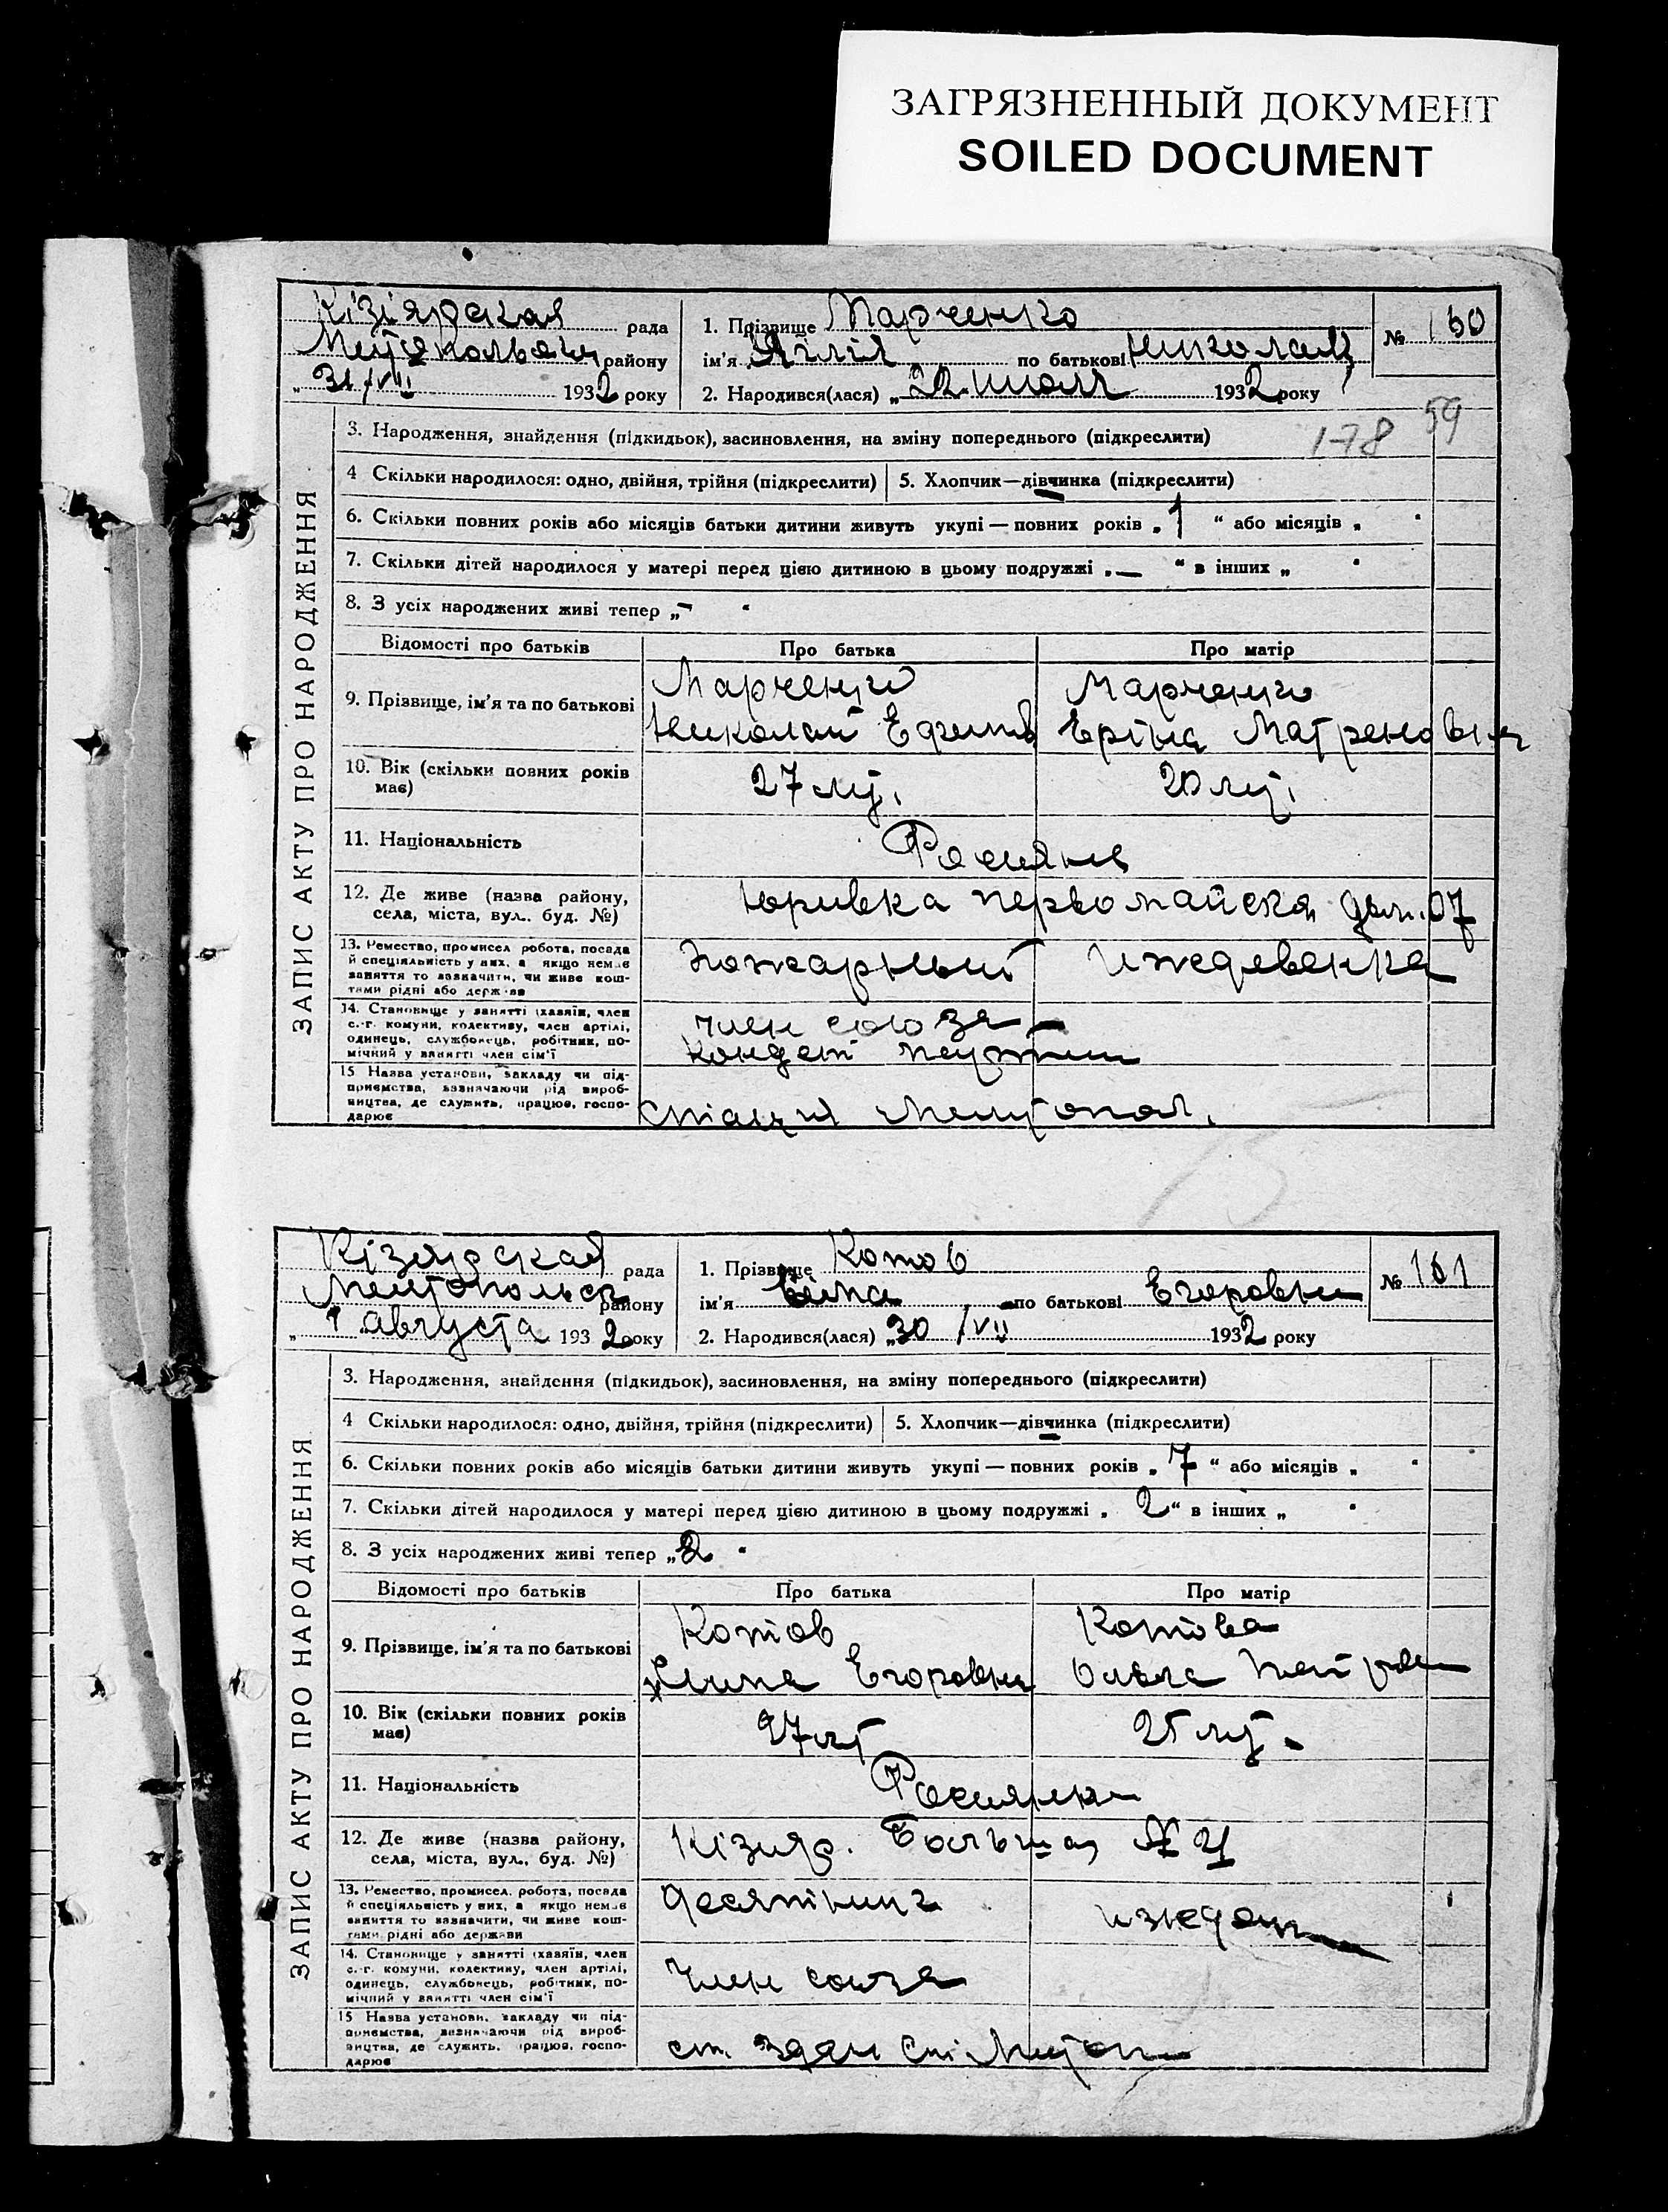 ЗАГРЯЗНЕННЫЙ ДОКУМЕНТ
SOILED DOCUMENT
ЗАПИС АКТУ ПРО НАРОДЖЕННЯ
Кізіярская рада
району
"31/VII 1932 року
1. Прізвище Марченко
ім'я по батькові
2. Народився(лася) „22 июля 1932 року
№ 160
3. Народження, знайдення (підкидьок), засиновлення, на зміну попереднього (підкреслити)
178 59
4 Скільки народилося: одно, двійня, трійня (підкреслити) 5. Хлопчик—дівчинка (підкреслити)
6. Скільки повних років або місяців батьки дитини живуть укупі — повних років „ 1 “ або місяців „ “
7. Скільки дітей народилося у матері перед цією дитиною в цьому подружжі „ — “ в інших „ “
8. З усіх народжених живі тепер „ - “
Відомості про батьків Про батька Про матір
9. Прізвище, ім'я та по батькові
Марченко Марченко
Николай Ефимов Еріна Матреновна
10. Вік (скільки повних років має) 27 лет. 20 лет.
11. Національність Росияне
12. Де живе (назва району, села, міста, вул. буд. №)
Юривка первомайска дом. 07
13. Ремество, промисел робота, посада й спеціяльність у них, а якщо немає заняття то зазначити, чи живе коштами рідні або держави
Пожарный Иждевенка
14. Становище у занятті (хазяїн, член с.-г. комуни, колективу, член артілі, одинець, службовець, робітник, помічний у занятті член сім'ї
член союза
15 Назва установи, закладу чи підприємства, зазначаючи рід виробництва, де служить, працює, господарює
Мелітопол.
ЗАПИС АКТУ ПРО НАРОДЖЕННЯ
Кізиярская рада
Мелитопольск району
" 1 августа 1932 року
1. Прізвище Котов
ім'я по батькові Егоровна
2. Народився(лася) „30/VII 1932 року
№ 161
3. Народження, знайдення (підкидьок), засиновлення, на зміну попереднього (підкреслити)
4 Скільки народилося: одно, двійня, трійня (підкреслити) 5. Хлопчик—дівчинка (підкреслити)
6. Скільки повних років або місяців батьки дитини живуть укупі — повних років „ 7 “ або місяців „ “
7. Скільки дітей народилося у матері перед цією дитиною в цьому подружжі „ 2 “ в інших „ “
8. З усіх народжених живі тепер „ 2 “
Відомості про батьків Про батька Про матір
9. Прізвище, ім'я та по батькові
Котов Котова
Егоровна
10. Вік (скільки повних років має) 27 лет 25 лет.
11. Національність Росияне
12. Де живе (назва району, села, міста, вул., буд. №)
Кізияр. Большая №
13. Ремество, промисел. робота, посада й спеціяльність у них, а якщо немає заняття то зазначити, чи живе коштами рідні або держави
десятник
14. Становище у занятті (хазяїн, член с.-г. комуни, колективу, член артілі, одинець, службовець, робітник, помічний у занятті член сім'ї
член союза
15 Назва установи, закладу чи підприємства, зазначаючи рід виробництва, де служить, працює, господарює